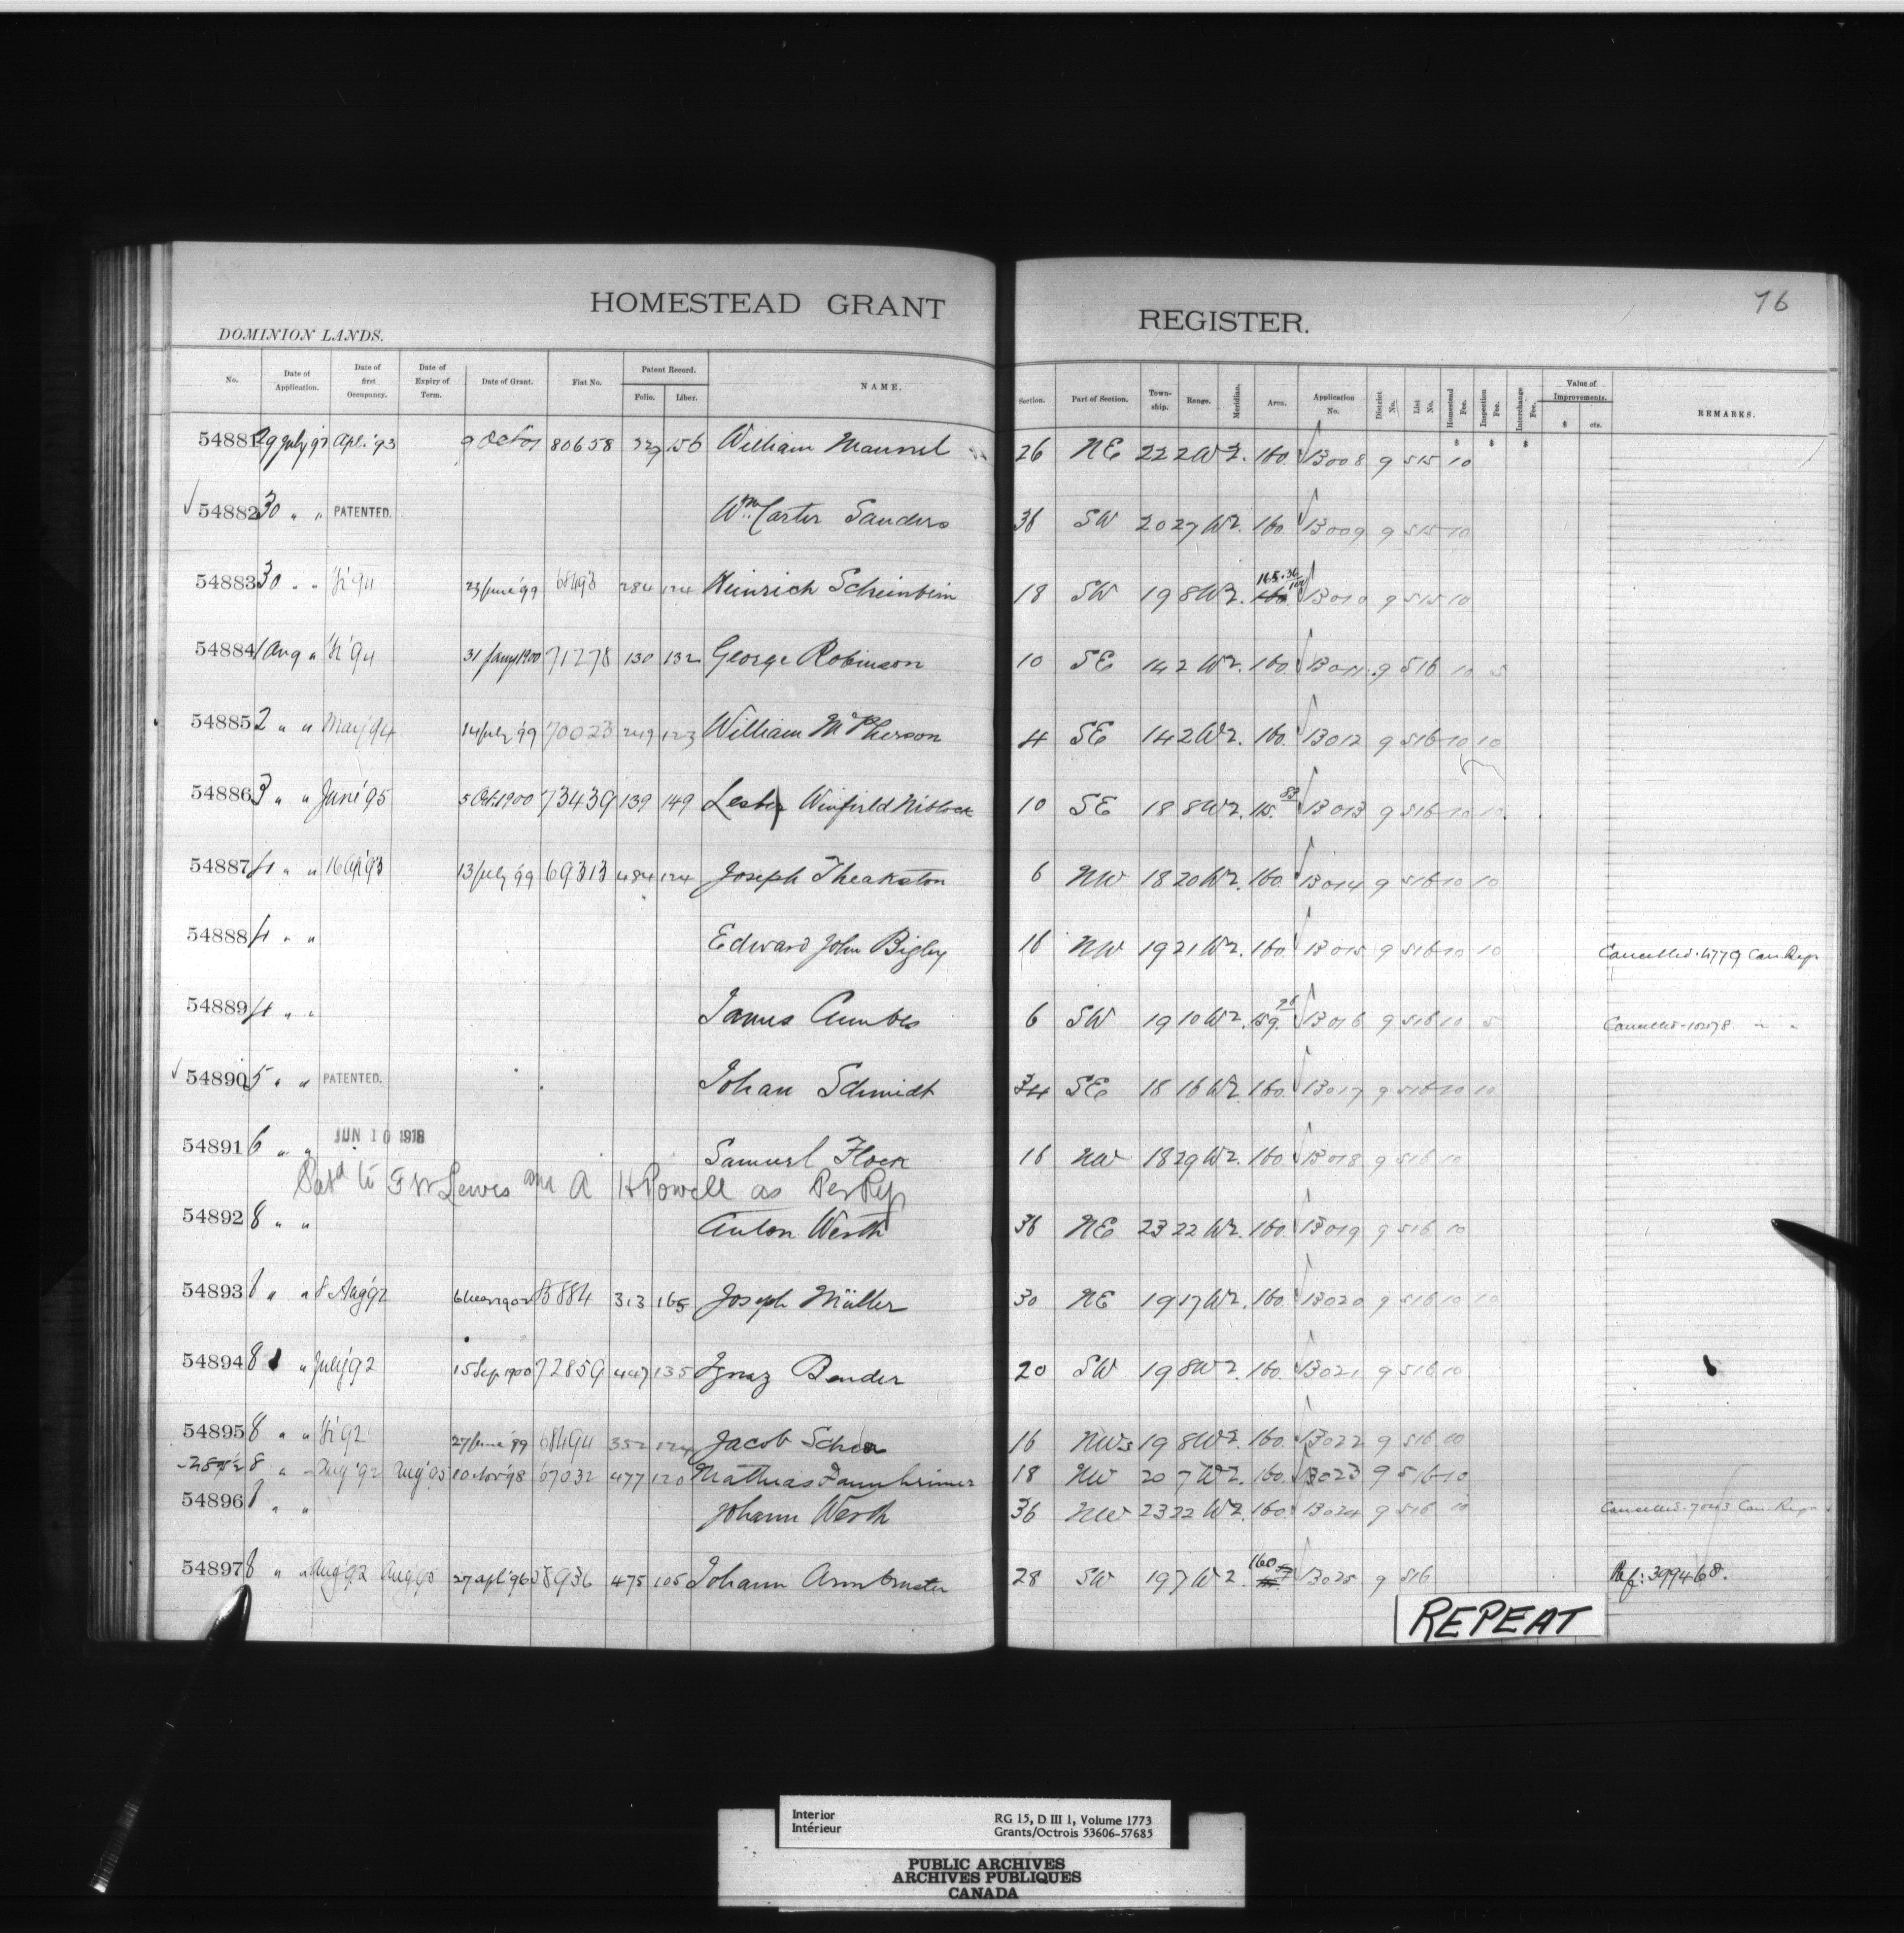 76
HOMESTEAD GRANT REGISTER.
DOMINION LANDS.
No. Date of Application. Date of first Occupancy. Date of Expiry of Term. Date of Grant. Fiat No. Patent Record. Folio. Liber. NAME. Section. Part of Section. Township. Range. Meridian. Area. Application No. District No. List No. Homestead Fee. Inspection Fee. Interchange Fee. Value of Improvements. $ cts. REMARKS.
$ $ $
54881 29 July 92 Apl. '93 9 Oct 01 80658 156 William 26 NE 22 2 W 2. 160. 13008 9 515 10
54882 30 " " PATENTED. Wm. Carter Sanders 36 SW 20 27 W 2. 160. 13009 9 515 10
54883 30 " " '94 23 June '99 68493 284 124 Heinrich 18 SW 19 8 W 2. 165.36/100 160 13010 9 515 10
54884 1 Aug " '94 31 Jany 1900 71278 130 132 George Robinson 10 SE 14 2 W 2. 160. 13011 9 516 10 5
54885 2 " " May '94 14 July '99 70023 249 123 William McPherson 4 SE 14 2 W 2. 160. 13012 9 516 10 10
54886 3 " " June '95 5 Oct. 1900 73439 139 149 Lester Winfield Niblock 10 SE 18 8 W 2. 115.83 13013 9 516 10 10.
54887 4 " " 16 Ap '93 13 July 99 69313 484 124 Joseph Theakston 6 NW 18 20 W 2. 160. 13014 9 516 10 10
54888 4 " " Edward John Bigley 16 NW 19 21 W 2. 160. 13015 9 516 10 10 Cancelled. 4779 Can. Regr
54889 4 " " James Cumbes 6 SW 19 10 W 2. 159. 13016 9 516 10 5 Cancelled " "
54890 5 " " PATENTED. Johan Schmidt 34 SE 18 16 W 2. 160. 13017 9 516 10 10
54891 6 " " JUN 10 1918 Samuel Flock 16 NW 18 29 W 2. 160 13018 9 516 10
Patd to F W Lewis and A H Powell as Per Rep
54892 8 " " Anton Werth 36 NE 23 22 W 2. 160. 13019 9 516 10
54893 8 " " 8 Aug 92 85884 313 165 Joseph Müller 30 NE 19 17 W 2. 160. 13020 9 516 10 10
54894 8 " " July '92 15 Sep. 1900 72859 447 135 Ignaz Bender 20 SW 19 8 W 2. 160. 13021 9 516 10
54895 8 " " '92 27 June '99 68494 352 124 Jacob 16 NW 19 8 W 2. 160. 13022 9 516 10
8 " " Aug '92 Aug '95 10 Nov '98 67032 477 120 Mathias 18 NW 20 7 W 2. 160. 13023 9 516 10
54896 8 " " Johann Werth 36 NW 23 22 W 2. 160. 13024 9 516 10 Cancelled. Can. Regr
54897 8 " " Aug '92 Aug '95 27 Apl '96 58936 475 105 Johann Armbruster 28 SW 19 7 W 2. 160 13025 9 516 Ref: 399468.
REPEAT
Interior
Intérieur
RG 15, D III 1, Volume 1773
Grants/Octrois 53606-57685
PUBLIC ARCHIVES
ARCHIVES PUBLIQUES
CANADA